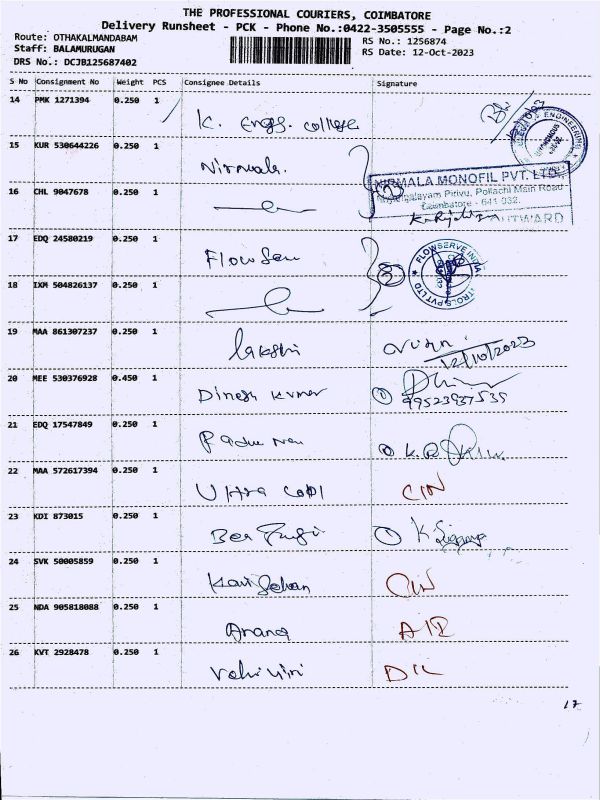 THE PROFESSIONAL COURIERS, COIMBATORE
Delivery Runsheet - PCK - Phone No.:0422-3505555 - Page No.:2
Route: OTHAKALMANDABAM
RS No.: 1256874
Staff: BALAMURUGAN
RS Date: 12-Oct-2023
DRS No.: DCJB125687402
S No Consignment No Weight PCS Consignee Details Signature
14 PMK 1271394 0.250 1
K. Engg. College
15 KUR 530644226 0.250 1
Nirmala.
NIRMALA MONOFIL PVT. LTD.
Pirivu, Pollachi Main Road
Coimbatore - 641 032.
OUTWARD
16 CHL 9047678 0.250 1
17 EDQ 24580219 0.250 1
Flowser
FLOWSERVE INDIA
PVT LTD
18 IXM 504826137 0.250 1
19 MAA 861307237 0.250 1
lakshi
12/10/2023
20 MEE 530376928 0.450 1
Dinesh Kumar
21 EDQ 17547849 0.250 1
22 MAA 572617394 0.250 1
Ultra
CIN
23 KDI 873015 0.250 1
24 SVK 50005859 0.250 1
25 NDA 905818088 0.250 1
26 KVT 2928478 0.250 1
17